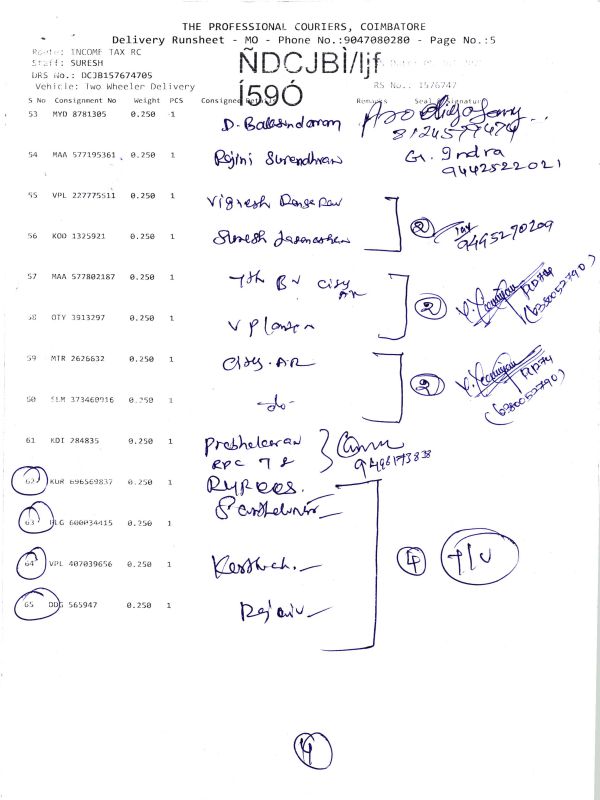 THE PROFESSIONAL COURIERS, COIMBATORE
Delivery Runsheet - MO - Phone No.:9047080280 - Page No.:5
Route: INCOME TAX RC
Staff: SURESH
DRS No.: DCJB157674705
Vehicle: Two Wheeler Delivery
ÑDCJBÌ/Ijf
Í59Ó
RS No.: 1576747
S No Consignment No Weight PCS Consignee Details Remarks Seal Signature
53 MYD 8781305 0.250 1 D. Balasundaram
8124577474
54 MAA 577195361 0.250 1 Rojini Surendhran G. Indra
9442522021
55 VPL 227775511 0.250 1 Vignesh
56 KOO 1325921 0.250 1 Suresh 2 9495270209
57 MAA 577802187 0.250 1 7th Bn City AR
58 OTY 3913297 0.250 1 V 2 (6380052790)
59 MTR 2626632 0.250 1 City. AR
60 SLM 373460916 0.250 1 -do- 2 (6380052790)
61 KDI 284835 0.250 1 Prabhakaran
RPC 72 9496173838
62 KUR 696569837 0.250 1 Rupees.
63 PLG 600034415 0.250 1
64 VPL 407039656 0.250 1 4
65 DDG 565947 0.250 1 Rajaiv
4